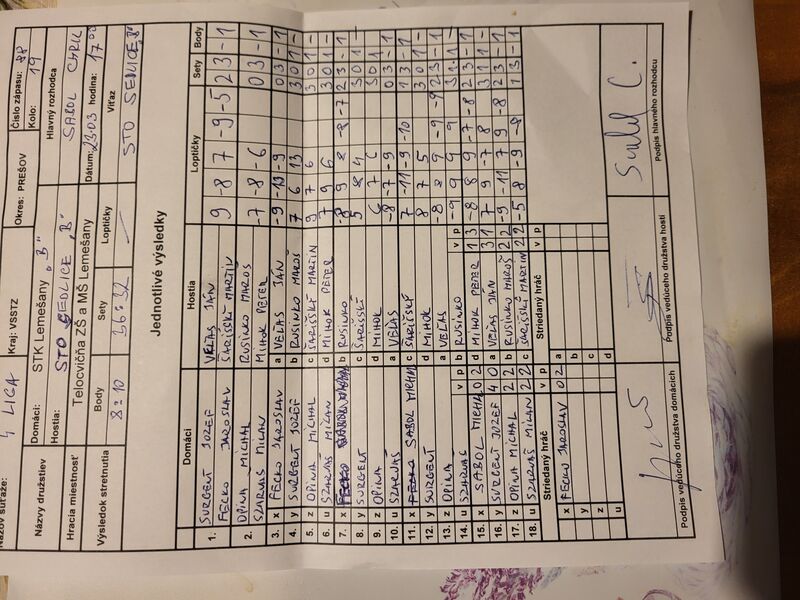 Názov súťaže: 4 LIGA Kraj: VSSTZ Okres: PREŠOV Číslo zápasu: 98
Kolo: 19
Názvy družstiev Domáci: STK Lemešany „B" Hlavný rozhodca
Hostia: STO SEDLICE „B" SABOL CYRIL
Hracia miestnosť Telocvičňa ZŠ a MŠ Lemešany Dátum: 23.03 hodina: 17:00
Výsledok stretnutia Body Sety Loptičky Víťaz
8:10 36:32 STO SEDLICE „B"
Jednotlivé výsledky
Domáci Hostia Loptičky Sety Body
1. SURGENT JOZEF VEĽAS JÁN 9 -8 7 -9 -5 2 3 - 1
FECKO JAROSLAV ŠARIŠSKÝ MARTIN
2. OPINA MICHAL RUSINKO MAROŠ -7 -8 -6 0 3 - 1
SZARVAŠ MILAN MIHOK PETER
3. x FECKO JAROSLAV a VEĽAS JÁN -9 -9 0 3 - 1
4. y SURGENT JOZEF b RUSINKO MAROŠ 7 6 13 3 0 1 -
5. z OPINA MICHAL c ŠARIŠSKÝ MARTIN 9 7 6 3 0 1 -
6. u SZARVAŠ MILAN d MIHOK PETER 7 9 6 3 0 1 -
7. x b RUSINKO 2 3 - 1
8. y SURGENT c ŠARIŠSKÝ 5 8 4 3 0 1 -
9. z OPINA d MIHOK 6 7 6 3 0 1 -
10. u SZARVAŠ a VEĽAS -8 -7 -9 0 3 - 1
11. x SABOL MICHAL c ŠARIŠSKÝ 7 -11 -9 -10 1 3 - 1
12. y SURGENT d MIHOK 8 7 5 3 0 1 -
13. z OPINA a VEĽAS 2 3 - 1
14. u SZARVAŠ b RUSINKO -9 9 9 9 3 1 1 -
v p v p
15. x SABOL MICHAL 0 2 d MIHOK PETER 1 3 2 3 - 1
16. y SURGENT JOZEF 4 0 a VEĽAS JÁN 3 1 7 9 -7 8 3 1 1 -
17. z OPINA MICHAL 2 2 b RUSINKO MAROŠ 2 2 -9 -11 7 9 -8 2 3 - 1
18. u SZARVAŠ MILAN 2 2 c ŠARIŠSKÝ MARTIN 2 2 -5 8 -9 -8 1 3 - 1
Striedaný hráč v p Striedaný hráč v p
x FECKO JAROSLAV 0 2 a
y b
z c
u d
Sabol C.
Podpis vedúceho družstva domácich Podpis vedúceho družstva hostí Podpis hlavného rozhodcu